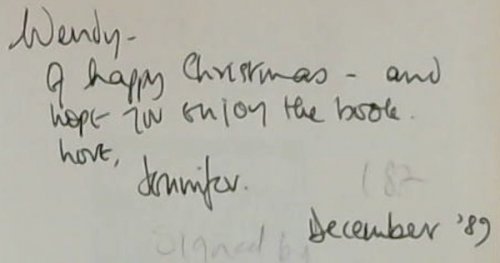 Wendy-
A happy Christmas - and
hope you enjoy the book.
Love,
Jennifer.
182
December '89
Signed by